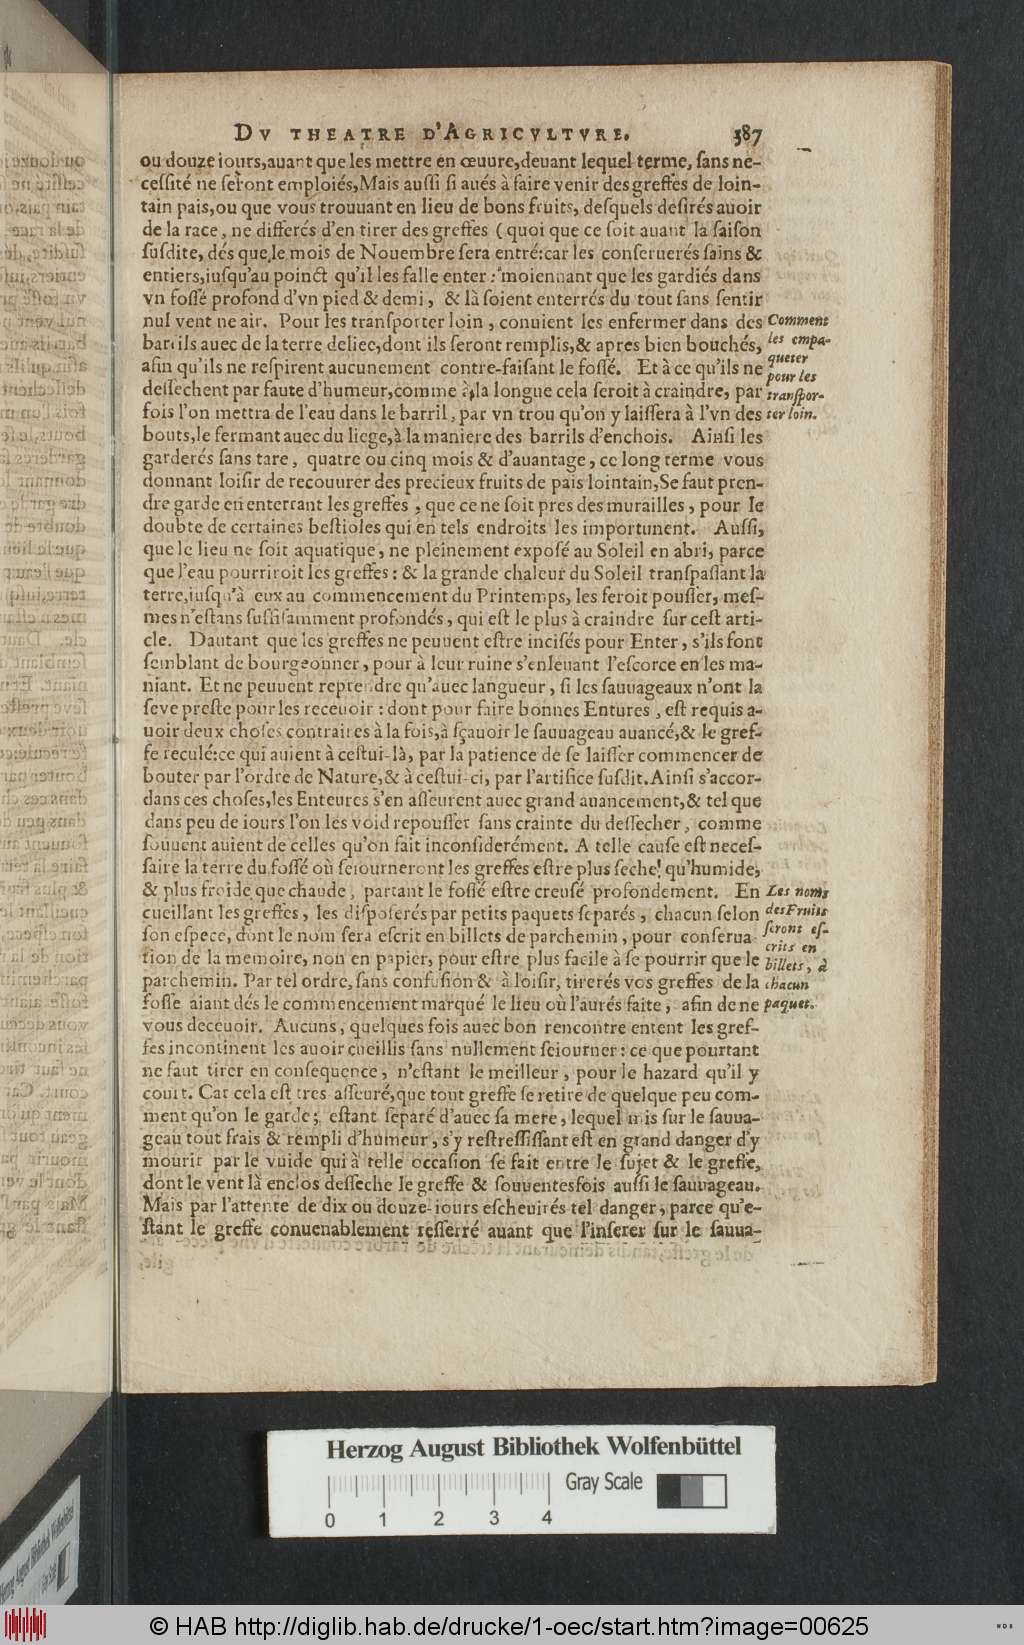 DV THEATRE D'AGRICVLTVRE. 387
ou douze iours,auant que les mettre en œuure,deuant lequel terme, ſans ne-
ceſſité ne ſeront emploiés,Mais auſſi ſi aués à faire venir des greffes de loin-
tain pais,ou que vous trouuant en lieu de bons fruits, deſquels deſirés auoir
de la race, ne differés d'en tirer des greffes (quoi que ce ſoit auant la ſaiſon
ſuſdite, dés que,le mois de Nouembre ſera entré:car les conſeruerés ſains &
entiers,iuſqu'au poinct qu'il les falle enter: moiennant que les gardiés dans
vn foſſé profond d'vn pied & demi, & là ſoient enterrés du tout ſans ſentir
nul vent ne air. Pour les tranſporter loin, conuient les enfermer dans des
barrils auec de la terre deliee,dont ils ſeront remplis,& apres bien bouchés,
afin qu'ils ne reſpirent aucunement contre-faiſant le foſſé. Et à ce qu'ils ne
deſſechent par faute d'humeur,comme à la longue cela ſeroit à craindre, par
fois l'on mettra de l'eau dans le barril, par vn trou qu'on y laiſſera à l'vn des
bouts,le fermant auec du liege,à la maniere des barrils d'enchois. Ainſi les
garderés ſans tare, quatre ou cinq mois & d'auantage, ce long terme vous
donnant loiſir de recouurer des precieux fruits de païs lointain,Se faut pren-
dre garde en enterrant les greffes, que ce ne ſoit pres des murailles, pour le
doubte de certaines beſtioles qui en tels endroits les importunent. Auſſi,
que le lieu ne ſoit aquatique, ne pleinement expoſé au Soleil en abri, parce
que l'eau pourriroit les greffes: & la grande chaleur du Soleil tranſpaſſant la
terre,iuſqu'à eux au commencement du Printemps, les feroit pouſſer, meſ-
mes n'eſtans ſuffiſamment profondés, qui eſt le plus à craindre ſur ceſt arti-
cle. Dautant que les greffes ne peuuent eſtre inciſés pour Enter, s'ils font
ſemblant de bourgeonner, pour à leur ruine s'enleuant l'eſcorce en les ma-
niant. Et ne peuuent reprendre qu'auec langueur, ſi les ſauuageaux n'ont la
ſeve preſte pour les receuoir: dont pour faire bonnes Entures, eſt requis a-
uoir deux choſes contraires à la fois,à ſçauoir le ſauuageau auancé,& le gref-
fe reculé:ce qui auient à ceſtui-là, par la patience de ſe laiſſer commencer de
bouter par l'ordre de Nature,& à ceſtui-ci, par l'artifice ſuſdit.Ainſi s'accor-
dans ces choſes,les Enteures s'en aſſeurent auec grand auancement,& tel que
dans peu de iours l'on les void repouſſer ſans crainte du deſſecher, comme
ſouuent auient de celles qu'on fait inconſiderément. A telle cauſe eſt neceſ-
ſaire la terre du foſſé où ſeiourneront les greffes eſtre plus ſeche qu'humide,
& plus froide que chaude, partant le foſſé eſtre creuſé profondement. En
cueillant les greffes, les diſpoſerés par petits paquets ſeparés, chacun ſelon
ſon eſpece, dont le nom ſera eſcrit en billets de parchemin, pour conſerua
tion de la memoire, non en papier, pour eſtre plus facile à ſe pourrir que le
parchemin. Par tel ordre, ſans confuſion & à loiſir, tirerés vos greffes de la
foſſe aiant dés le commencement marqué le lieu où l'aurés faite, afin de ne
vous deceuoir. Aucuns, quelques fois auec bon rencontre entent les gref-
fes incontinent les auoir cueillis ſans nullement ſeiourner: ce que pourtant
ne faut tirer en conſequence, n'eſtant le meilleur, pour le hazard qu'il y
court. Car cela eſt tres aſſeuré,que tout greffe ſe retire de quelque peu com-
ment qu'on le garde; eſtant ſeparé d'auec ſa mere, lequel mis ſur le ſauua-
geau tout frais & rempli d'humeur, s'y reſtreſſiſſant eſt en grand danger d'y
mourir par le vuide qui à telle occaſion ſe fait entre le ſujet & le greffe,
dont le vent là enclos deſſeche le greffe & ſouuentesfois auſſi le ſauuageau.
Mais par l'attente de dix ou douze iours eſcheuirés tel danger, parce qu'e-
ſtant le greffe conuenablement reſſerré auant que l'inſerer ſur le ſauua-
Comment
les empa-
queter
pour les
tranſpor-
ter loin.
Les noms
des Fruits
ſeront eſ-
crits en
billets, à
chacun
paquet.
Herzog August Bibliothek Wolfenbüttel
Gray Scale
0 1 2 3 4
© HAB http://diglib.hab.de/drucke/1-oec/start.htm?image=00625